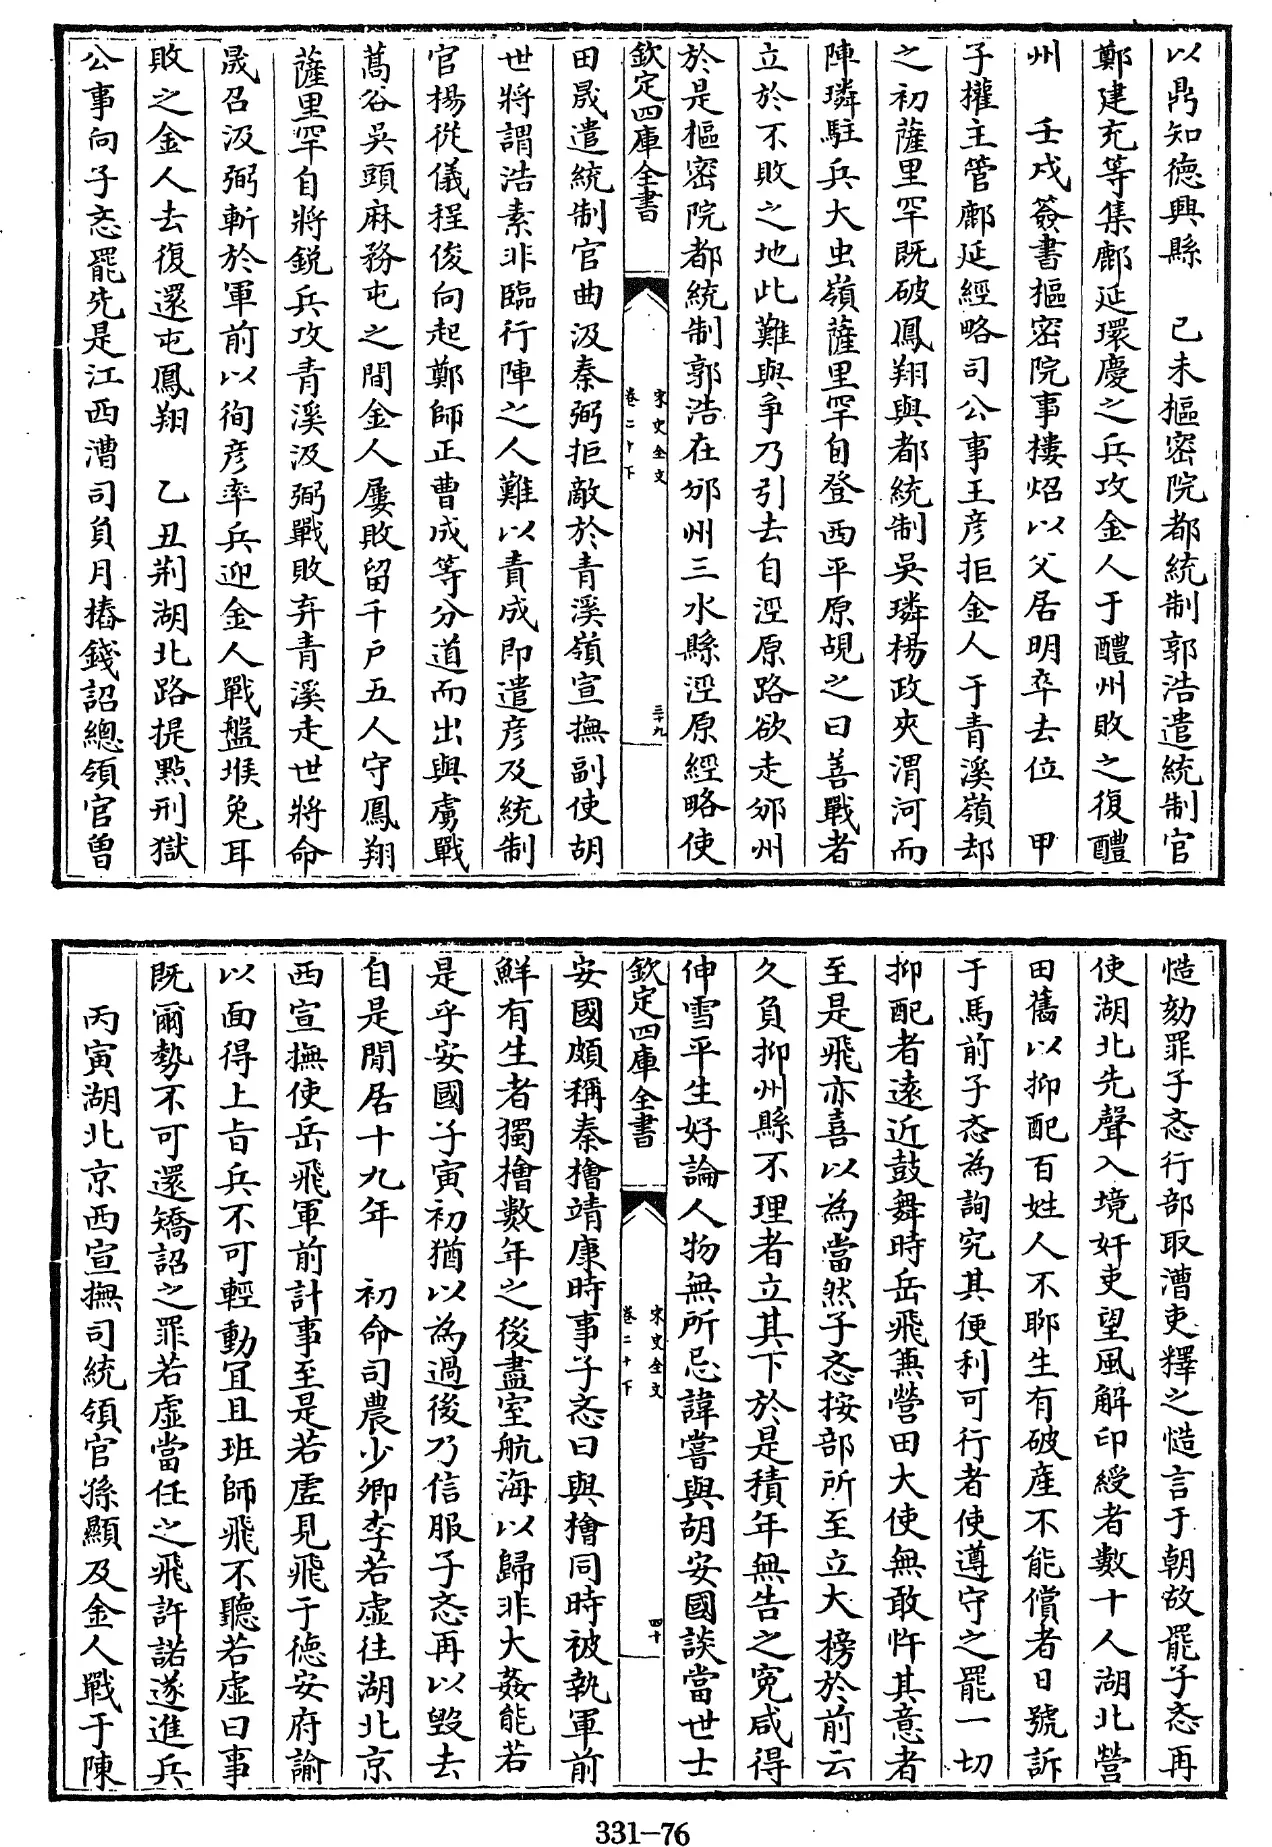 以鼎知德興縣　己未樞密院都統制郭浩遣統制官
鄭建充等集鄜延環慶之兵攻金人于醴州敗之復醴
州　壬戌簽書樞密院事樓炤以父居明卒去位　甲
子權主管鄜延經略司公事王彦拒金人于青溪嶺却
之初薩里罕既破鳳翔與都統制吳璘楊政夾渭河而
陣璘駐兵大虫嶺薩里罕自登西平原覘之曰善戰者
立於不敗之地此難與爭乃引去自涇原路欲走邠州
於是樞密院都統制郭浩在邠州三水縣涇原經略使
欽定四庫全書
宋史全文
卷二十下
三十九
田晟遣統制官曲汲秦弼拒敵於青溪嶺宣撫副使胡
世將謂浩素非臨行陣之人難以責成即遣彦及統制
官楊從儀程俊向起鄭師正曹成等分道而出與虜戰
蒿谷吳頭麻務屯之間金人屢敗留千戶五人守鳳翔
薩里罕自將鋭兵攻青溪汲弼戰敗弃青溪走世將命
晟召汲弼斬於軍前以徇彦率兵迎金人戰盤堠兔耳
敗之金人去復還屯鳳翔　乙丑荆湖北路提點刑獄
公事向子忞罷先是江西漕司負月樁錢詔總領官曽
慥劾罪子忞行部取漕吏釋之慥言于朝故罷子忞再
使湖北先聲入境奸吏望風解印綬者數十人湖北營
田舊以抑配百姓人不聊生有破産不能償者日號訴
于馬前子忞為詢究其便利可行者使遵守之罷一切
抑配者遠近鼓舞時岳飛兼營田大使無敢忤其意者
至是飛亦喜以為當然子忞按部所至立大榜於前云
久負抑州縣不理者立其下於是積年無告之寃咸得
伸雪平生好論人物無所忌諱嘗與胡安國談當世士
欽定四庫全書
宋史全文
卷二十下
四十
安國頗稱秦檜靖康時事子忞曰與檜同時被執軍前
鮮有生者獨檜數年之後盡室航海以歸非大姦能若
是乎安國子寅初猶以為過後乃信服子忞再以毀去
自是閒居十九年　初命司農少卿李若虛往湖北京
西宣撫使岳飛軍前計事至是若虛見飛于德安府諭
以面得上旨兵不可輕動宜且班師飛不聽若虛曰事
既爾勢不可還矯詔之罪若虛當任之飛許諾遂進兵
丙寅湖北京西宣撫司統領官孫顯及金人戰于陳
331-76